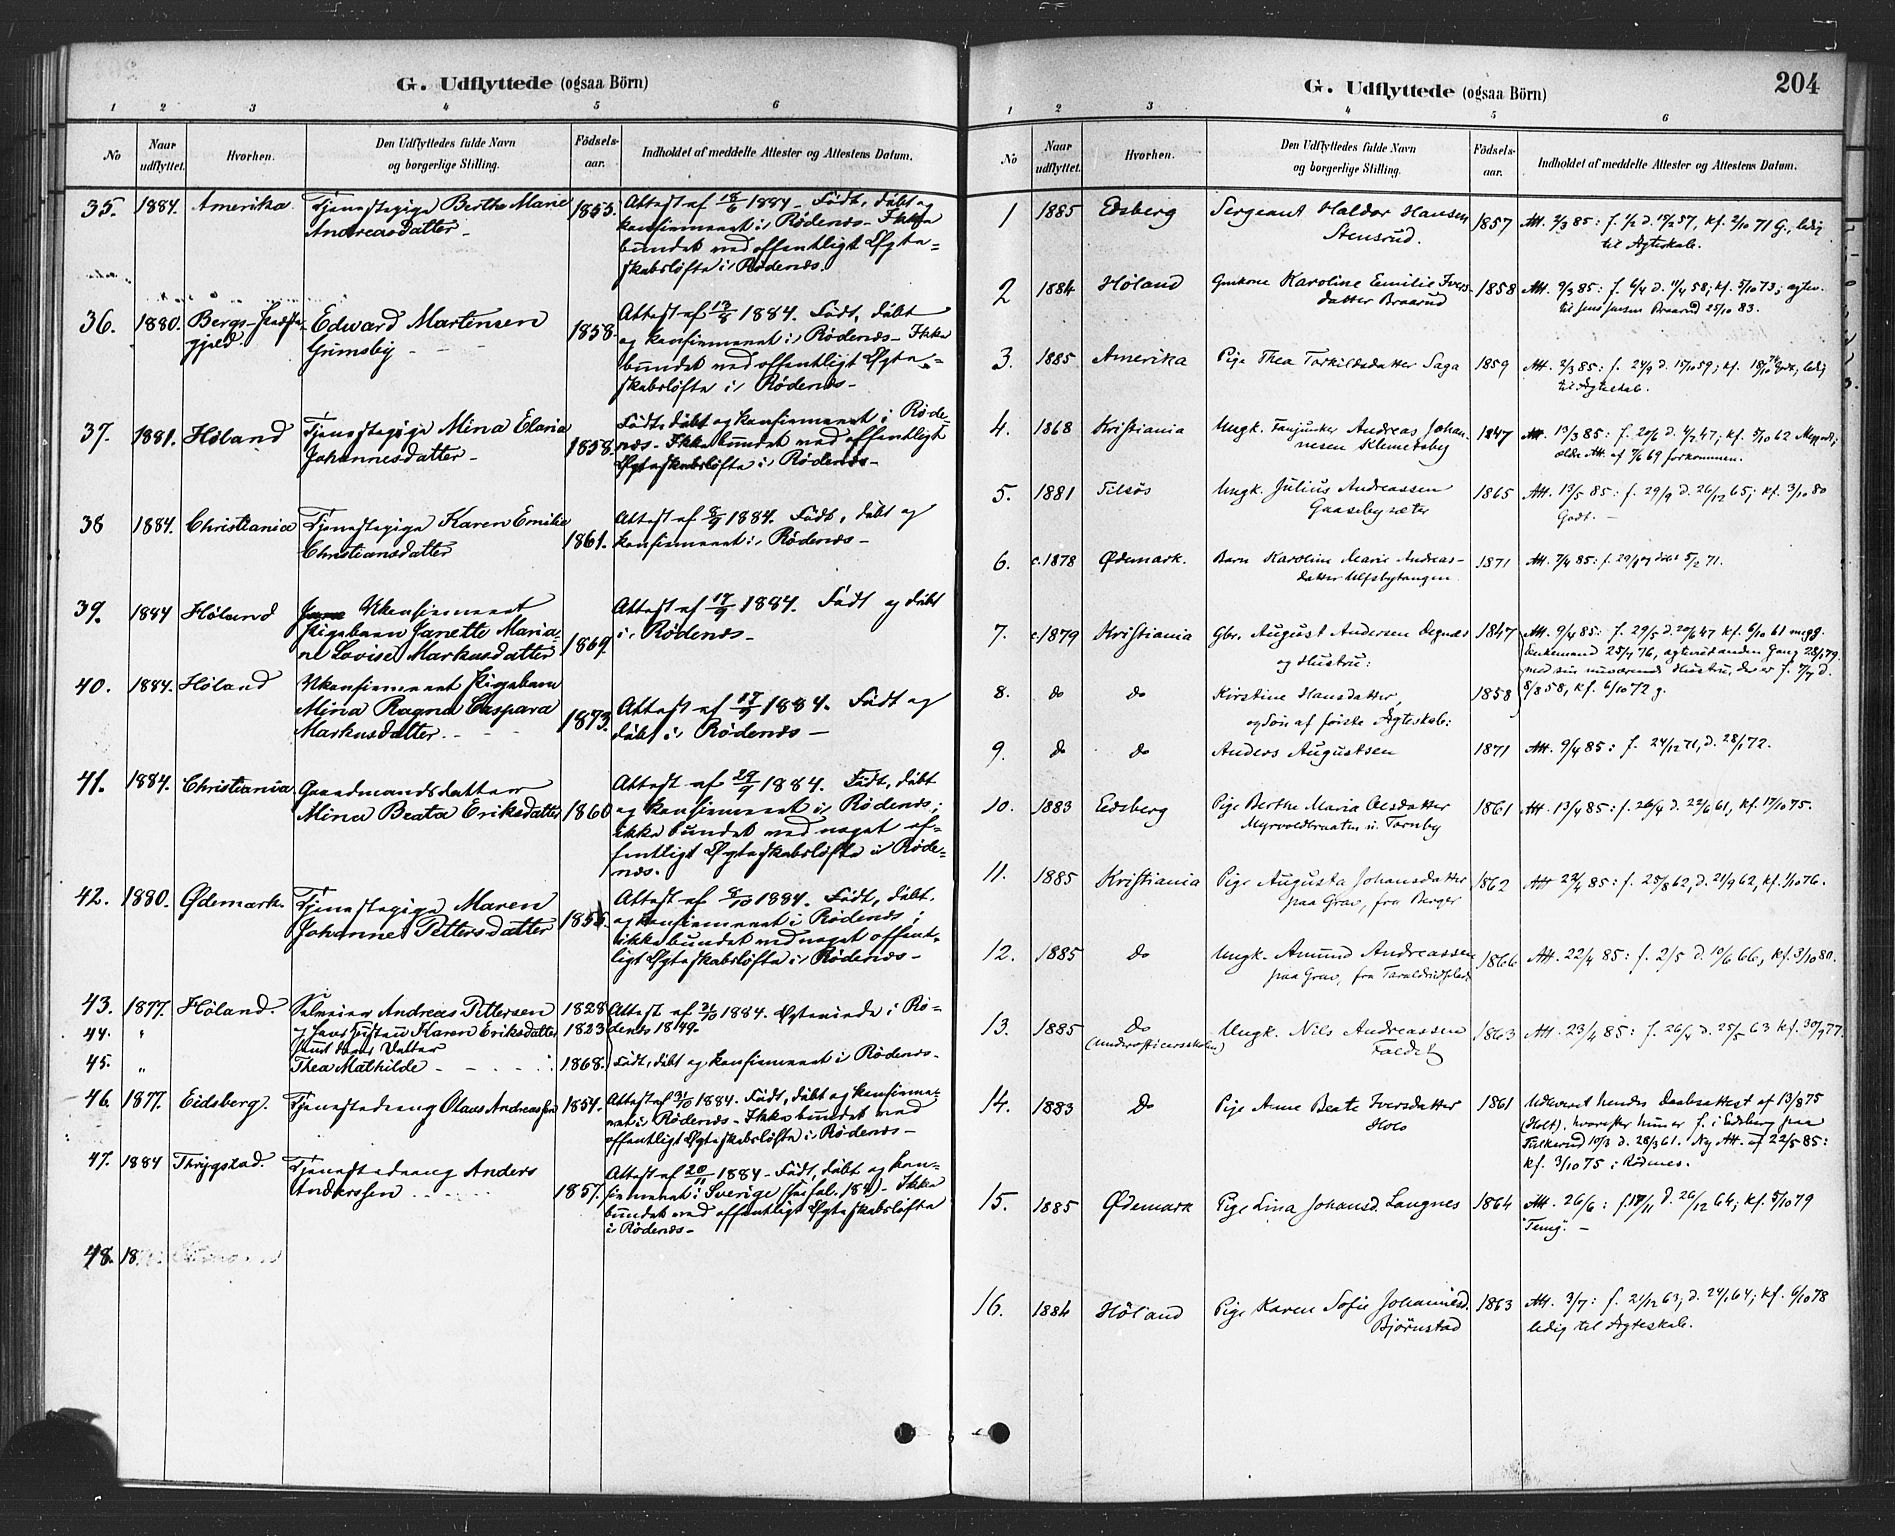 G. Udflyttede (ogsaa Börn)
1 2 3 4 5 6
No
Naar udflyttet.
Hvorhen.
Den Udflyttedes fulde Navn og borgerlige Stilling.
Födsels-aar.
Indholdet af meddelte Attester og Attestens Datum.
35. 1884. Amerika. Tjenestepige Berthe Marie 1853. Attest af 18/6 1884. Födt, döbt og
Andreasdatter konfirmeret i Rødenes. Ikke
bundet ved offentligt Ægte-
skabsløfte i Rødenes.
36. 1880. Bergs Præste- Edward Martensen 1858. Attest af 13/8 1884. Födt, döbt
gjeld. Grimsby og konfirmeret i Rødenes. Ikke
bundet ved offentligt Ægte-
skabsløfte i Rødenes.
37. 1881. Høland Tjenestepige Mina Elaria 1858. Födt, döbt og konfirmeret i Røde-
Johannesdatter nes. Ikke bundet ved offentligt
Ægteskabsløfte i Rødenes.
38 1884. Christiania Tjenestepige Karen Emilie 1861. Attest af 8/9 1884. Födt, döbt og
Christiansdatter konfirmeret i Rødenes.
39. 1884 Høland Ukonfirmeret Attest af 17/9 1884. Födt og döbt
Pigebarn Janette Maria- 1869. i Rødenes.
ne Lovise Markusdatter
40. 1884. Høland Ukonfirmeret Pigebarn
Mina Ragna Caspara 1873. Attest af 17/9 1884. Födt og
Markusdatter. döbt i Rødenes
41. 1884. Christiania. Gaardmandsdatter Attest af 29/9 1884. Födt, döbt
Mina Beata Eriksdatter 1860 og konfirmeret i Rødenes;
ikke bundet ved noget of-
fentligt Ægteskabsløfte i Røde-
nes.
42. 1880. Ødemark. Tjenestepige Maren 1855. Attest af 8/10 1884. Födt, döbt
Johanne Pettersdatter og konfirmeret i Rødenes;
ikke bundet ved noget offent-
ligt Ægteskabsløfte i Rødenes
43. 1877. Høland. Selveier Andreas Pettersen 1828 Attest af 21/10 1884. Ægteviede i Rø-
44. " Hustru Karen Eriksdatter 1823 denes 1849.
samt deres Datter
45. " Thea Mathilde 1868. Födt, döbt og konfirmeret i Rødenes.
46. 1877. Eidsberg. Tjenestedreng Olaus Andreassen 1854. Attest af 31/10 1884. Födt, döbt og konfirme-
ret i Rødenes. Ikke bundet ved
offentligt Ægteskabsløfte i Rødenes
47. 1884 Thrygstad. Tjenestedreng Anders 1857. Attest af 20/11 1884. Födt, döbt og kon-
Anderssen firmeret i Sverige. Ikke
bundet ved offentligt Ægteskabsløfte
i Rødenes
48. 18
G. Udflyttede (ogsaa Börn) 204
1 2 3 4 5 6
No
Naar udflyttet.
Hvorhen.
Den Udflyttedes fulde Navn og borgerlige Stilling.
Födsels-aar.
Indholdet af meddelte Attester og Attestens Datum.
1 1885 Edsberg Sergeant Haldor Hansen 1857 Att. 2/3 85: f. 1/2 d. 15/2 57, kf. 2/10 71 G., ledig
Stensrud. til Ægteskab.
2 1884 Höland Gmkone Karoline Emilie Ivers- 1858 Att. 9/3 85: f. 6/4 d. 11/4 58; kf. 5/10 73; ægtev.
datter Braarud til Jens Jensen Braarud 25/10 83.
3. 1885 Amerika Pige Thea Torkildsdatter Saga 1859 Att. 2/3 85: f. 24/9 d. 15/10 59; kf. ledig
til Ægteskab.
4. 1868 Kristiania Ungk. Fanjunker Andreas Johan- 1847 Att. 13/3 85: f. 20/6 d. 4/7 47; kf. 5/10 62
nesen Klemetsby ældre Att. af 7/6 69 forkommen.
5. 1881 Ungk. Julius Andreassen 1865 Att. 13/5 85: f. 29/9 d. 26/12 65; kf. 3/10 80
Gaasebysæter Godt.
6. c.1878 Ødemark. Barn Karoline Marie Andreas- 1871 Att. 7/4 85: f. 29/1 døbt 5/2 71.
datter Ulfsbytangen
7. c.1879 Kristiania Gbr. August Andersen Degnæs 1847 Att. 9/4 85: f. 29/5 d. 20/6 47 kf. 6/10 61 megg.
og Hustru: Enkemand 25/7 76, ægteviet anden Gang 28/1 79.
med sin nuværende Hustru, der er f. 7/7 d.
8. do do Kirstine Hansdatter, 1858 8/8 58, kf. 6/10 72 g.
og Søn af første Ægteskab:
9. do do Anders Augustsen 1871 Att. 9/4 85: f. 24/12 71, d. 28/1 72.
10. 1883 Edsberg Pige Berthe Maria Olsdatter 1861 Att. 13/4 85: f. 26/4 d. 22/6 61, kf. 17/10 75.
Myrvoldbraaten u. Tornby
11. 1885 Kristiania Pige Augusta Johansdatter 1862 Att 22/4 85: f. 25/8 62, d. 21/9 62, kf. 1/10 76.
paa Grav, fra Berger
12. 1885 do Ungk. Amund Andreassen 1866 Att. 22/4 85: f. 2/5 d. 10/6 66, kf. 3/10 80.
paa Grav, fra
13. 1885 Do Ungk. Nils Andreassen 1863 Att. 23/4 85: f. 26/4 d. 25/5 63 kf. 30/9 77.
(Underofficersskolen) Faldet
14. 1883 Do Pige Anne Beate Iversdatter 1861 Udleveret hendes Daabsattest af 13/8 75
Holo (Holt), hvorefter hun er f. i Edsberg paa
10/3 d. 28/3 61. Ny Att. af 22/5 85:
kf. 3/10 75 i Rødenes.
15. 1885 Ødemark Pige Lina Johansd. Langnes 1864 Att. 26/6: f. 17/11 d. 26/12 64; kf. 5/10 79
Temg.
16. 1884 Höland Pige Karen Sofie Johannesd. 1863 Att. 3/7: f. 21/12 63; d. 24/1 64; kf. 6/10 78
Bjørnstad ledig til Ægteskab.